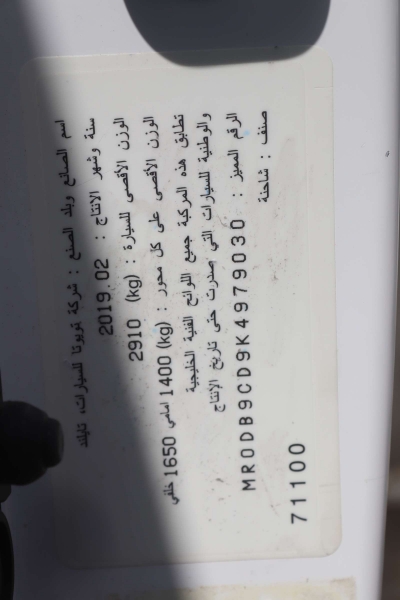 اسم الصانع وبلد الصنع : شركة تويوتا للسيارات، تايلاند
سنة وشهر الانتاج : 2019.02
الوزن الأقصى للسيارة : (kg) 2910
الوزن الأقصى على كل محور : (kg) 1400 امامي 1650 خلفي
تطابق هذه المركبة جميع اللوائح الفنية الخليجية
والوطنية للسيارات التي صدرت حتى تاريخ الإنتاج
الرقم المميز : MR0DB9CD9K4979030
صنف : شاحنة
71100